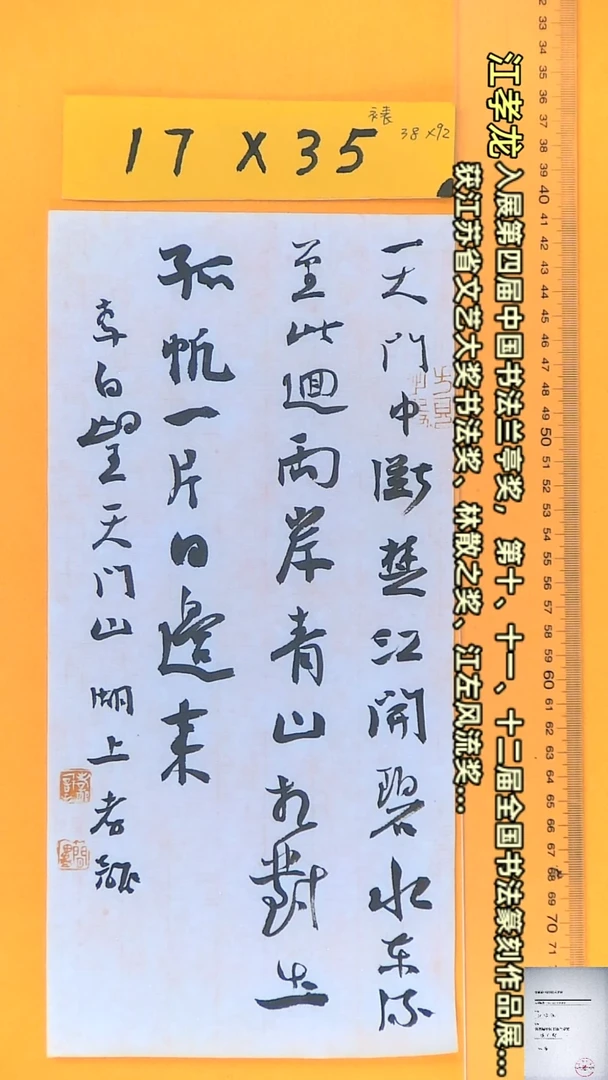 17 X 35
裱
38 x 92
江孝龙 入展第四届中国书法兰亭奖，第十、十一、十二届全国书法篆刻作品展...
获江苏省文艺大奖书法奖、林散之奖、江左风流奖...
天門中斷楚江開碧水東流
至此迴兩岸青山相對出
孤帆一片日邊来
李白望天门山 湖上孝龍
32
33
34
35
36
37
38
39
40
41
42
43
44
45
46
47
48
49
50
51
52
53
54
55
56
57
58
59
60
61
62
63
64
65
66
67
68
69
70
71